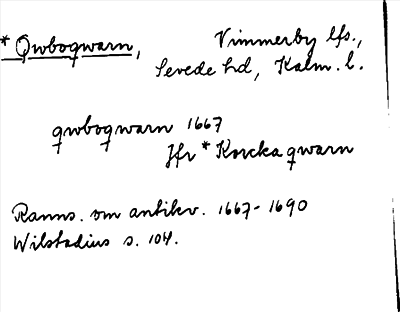 * Qwboqwarn, Vimmerby lfs.,
Sevede hd, Kalm. l.
qwboqwarn 1667
Jfr * Korckaqwarn
Ranns. om antikv. 1667-1690
Wilstadius s. 104.